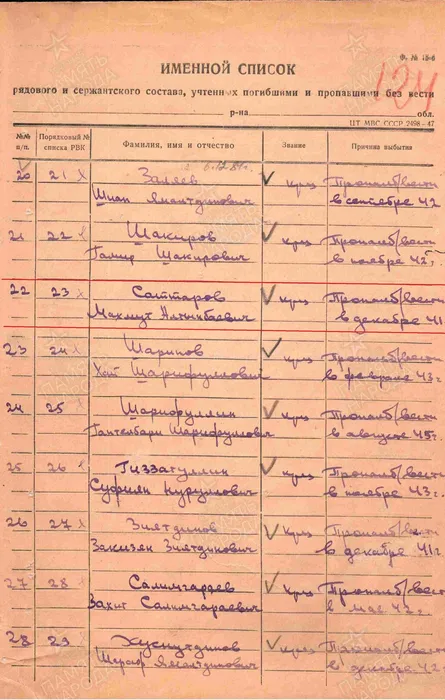 Ф. № 15-б
124
ИМЕННОЙ СПИСОК
рядового и сержантского состава, учтенных погибшими и пропавшими без вести
р-на обл.
ЦТ МВС СССР 2498-47
№№ п/п. Порядковый № списка РВК Фамилия, имя и отчество Звание Причина выбытия
20 21 Заляев Кр-ец Пропал б/вести
в сентябре 42
21 22 Шакиров Кр-ец Пропал б/вести
Шакирович в ноябре 42 г.
22 23 Саттаров Кр-ец Пропал б/вести
Махмут в декабре 41
23 24 Шарипов Кр-ец Пропал б/вести
Шарифуллович в феврале 43 г.
24 25 Шарифуллин Кр-ец Пропал б/вести
Шарифуллович в августе 45 г.
25 26 Гиззатуллин Кр-ец Пропал б/вести
Суфиян в ноябре 43 г.
26 27 Зиятдинов Кр-ец Пропал б/вести
Закизян Зиятдинович в декабре 41 г
27 28 Салимгараев Кр-ец Пропал б/вести
Салимгараевич в мае 42 г.
28 29 Хуснутдинов Кр-ец Пропал б/вести
в декабре 42